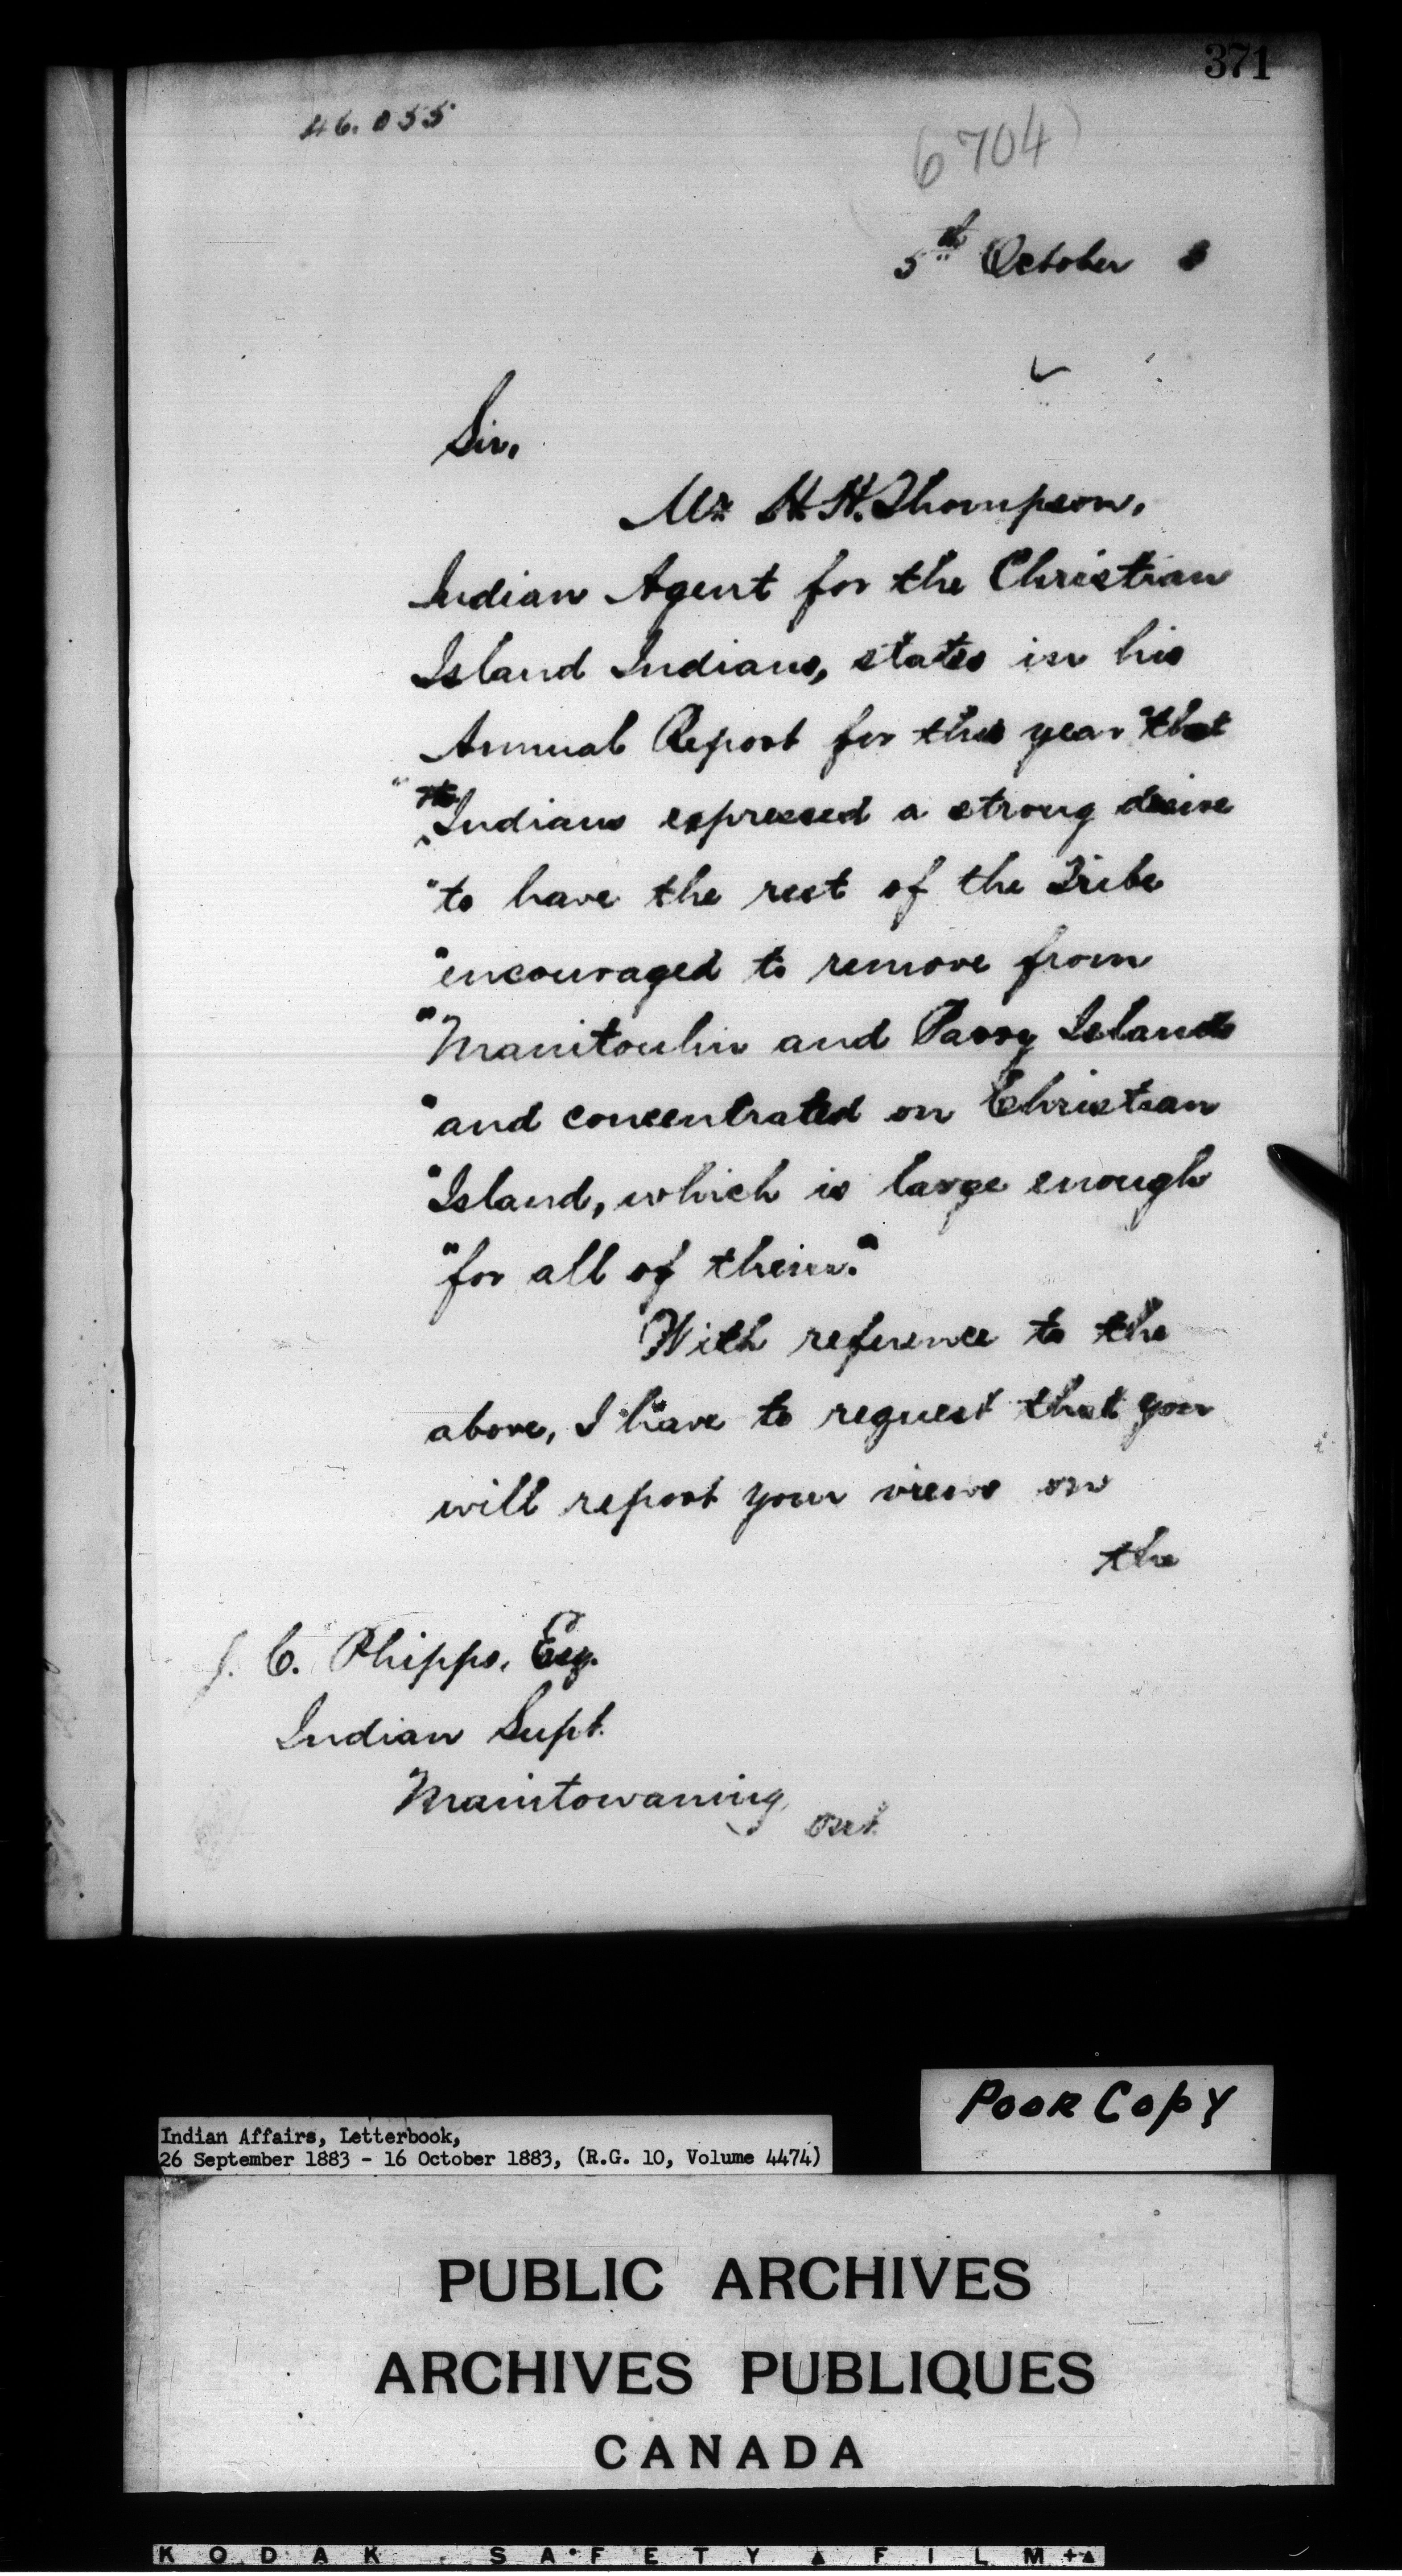 371
46.055
6704
5th October 3
Sir,
Mr H. H. Thompson,
Indian Agent for the Christian
Island Indians, states in his
Annual Report for this year "that
" the Indians expressed a strong desire
"to have the rest of the Tribe
"encouraged to remove from
"Manitoulin and Parry Islands
"and concentrated on Christian
"Island, which is large enough
"for all of them."
With reference to the
above, I have to request that you
will report your views on
the
J. C. Phipps, Esq.
Indian Supt.
Manitowaning, Ont.
POOR COPY
Indian Affairs, Letterbook,
26 September 1883 - 16 October 1883, (R.G. 10, Volume 4474)
PUBLIC ARCHIVES
ARCHIVES PUBLIQUES
CANADA
KODAK SAFETY FILM